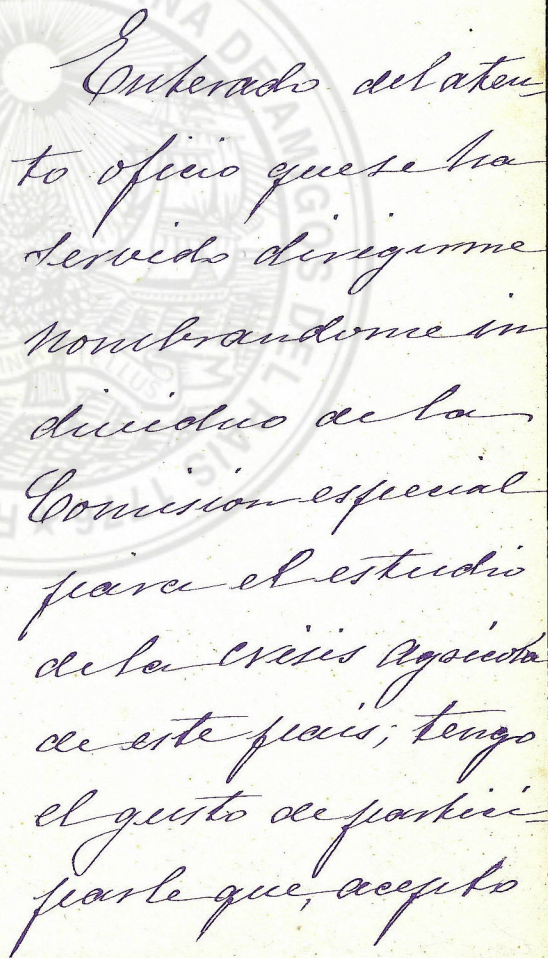 Enterado del aten-
to oficio que se ha
servido dirigirme
nombrandome in
dividuo de la
Comision especial
para el estudio
de la crisis agricola
de este pais; tengo
el gusto de partici-
parle que, acepto
NA DE AMIGOS DEL PAIS